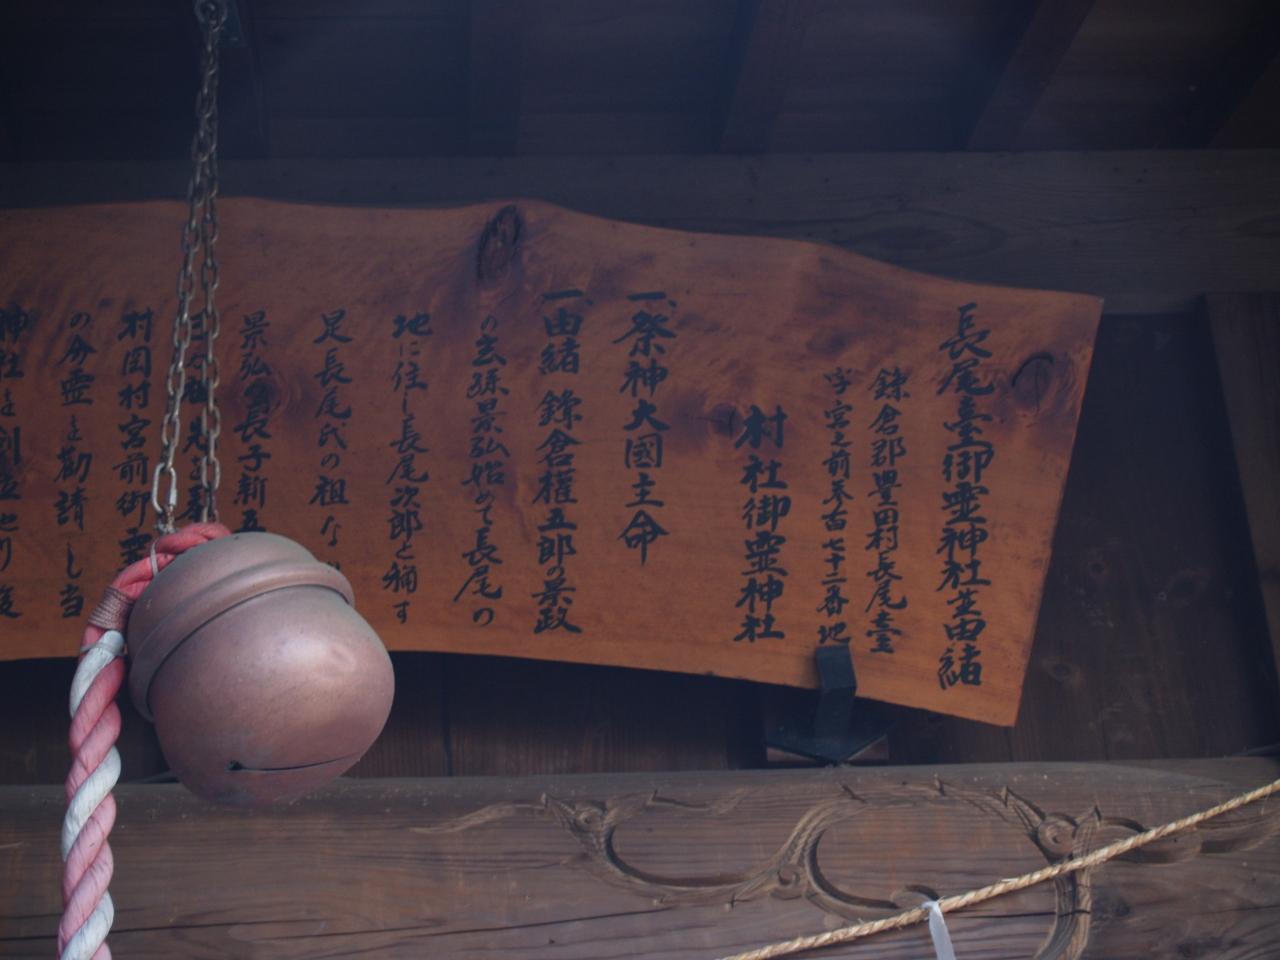 長尾臺御霊神社並由緒
鎌倉郡豊田村長尾臺
字宮之前参百七十二番地
村社御霊神社
一、祭神大國主命
一、由緒 鎌倉権五郎の景政
の玄孫景弘始めて長尾の
地に住し長尾次郎と稱す
足長尾氏の祖な
景弘の長子新五
村岡村宮前御霊
の分霊を勧請し当
神社を創立せり